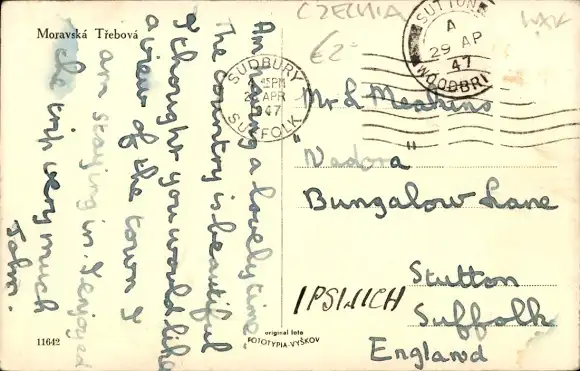 CZECHIA
Moravská Třebová
€2
SUTTON
A
29 AP
47
WOODBRI
SUDBURY
PM
APR
1947
SUFFOLK
Am having a lovely time.
The country is beautiful
& thought you would like
a view of the town I
am staying in. I enjoyed
the trip very much
John.
Mr L. Meakins
"Nadora"
Bungalow Lane
Stutton
IPSWICH
Suffolk
England
11642
original foto
FOTOTYPIA-VYŠKOV